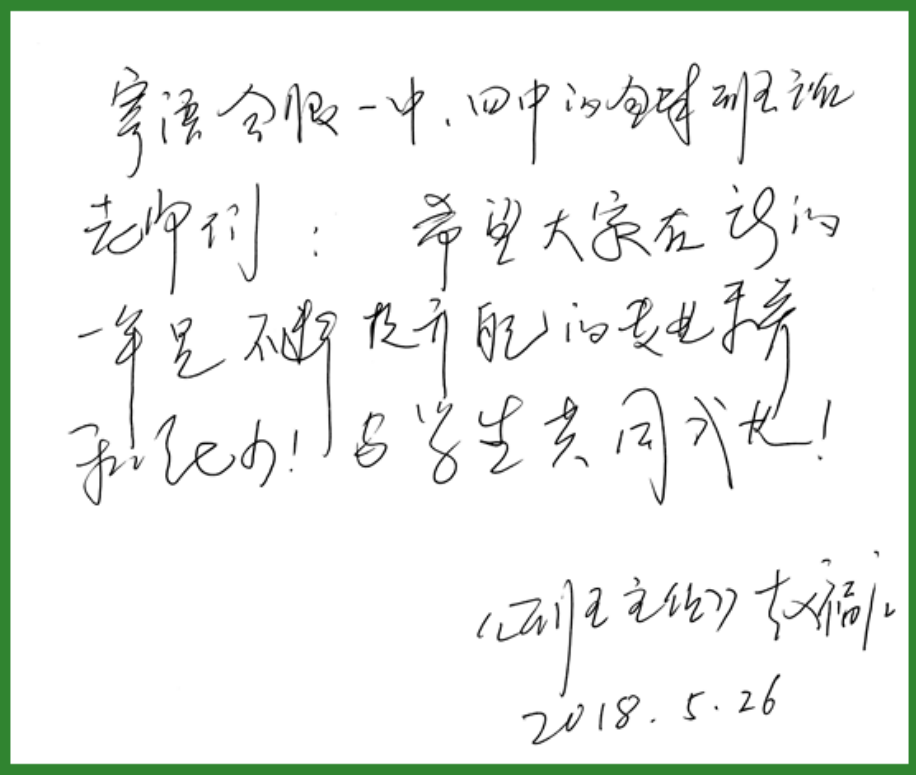 寄语合肥一中、四中的全球班主任
老师们： 希望大家在新的
一年是不断提升自己的专业素养
和能力！与学生共同成长！
《班主任》赵福江
2018.5.26